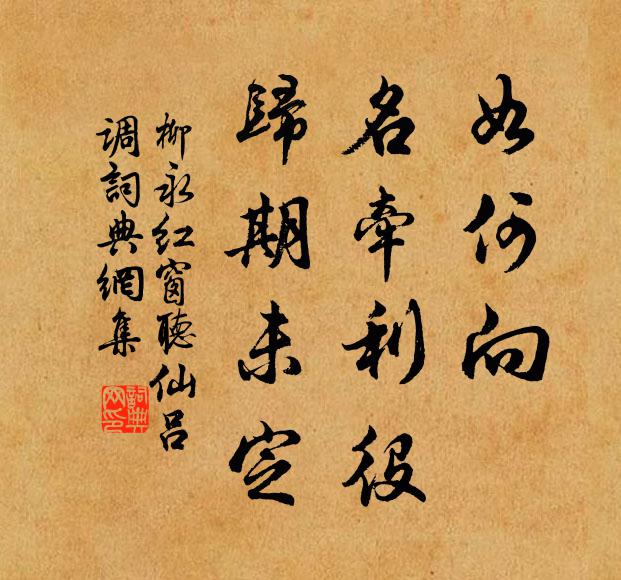 如何向
名牽利役
歸期未定
柳永红窗聽仙呂
调詞典網集
詞典网印